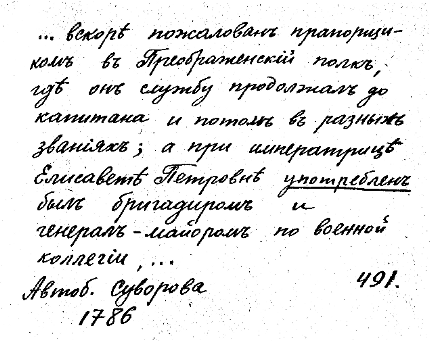 ... вскорѣ пожалованъ прапорщи-
комъ въ Преображенскій полкъ,
гдѣ онъ службу продолжалъ до
капитана и потомъ въ разныхъ
званіяхъ; а при императрицѣ
Елисаветѣ Петровнѣ употребленъ
былъ бригадиромъ и
генералъ-майоромъ по военной
коллегіи, ...
Автоб. Суворова 491.
1786